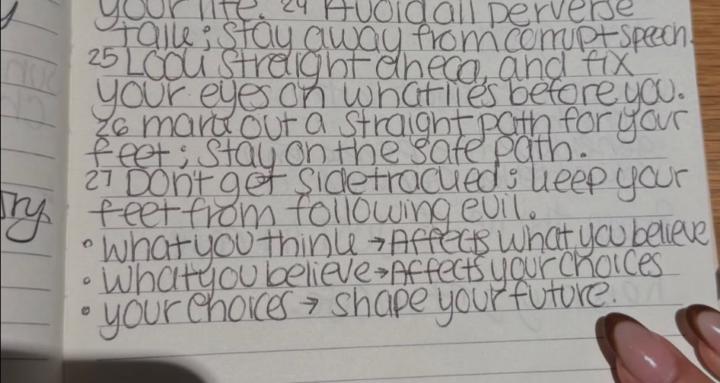 your life. 24 Avoid all perverse
talk; stay away from corrupt speech.
25 Look straight ahead, and fix
your eyes on what lies before you.
26 mark out a straight path for your
feet; stay on the safe path.
27 Don't get sidetracked; keep your
feet from following evil.
• what you think → Affects what you believe
• what you believe → Affects your choices
• your choices → shape your future.
Try